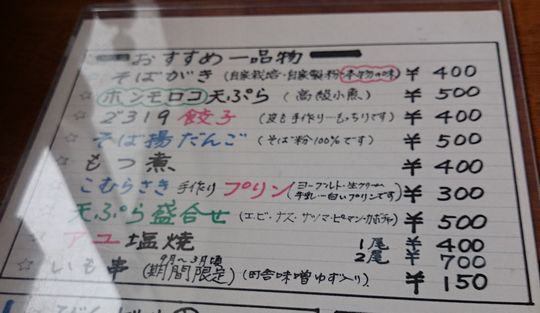 おすすめ一品物
そばがき (自家栽培・自家製粉 本物の味) ¥400
☆ホンモロコ天ぷら (高級小魚) ¥500
2319餃子 (皮も手作りーもっちりです) ¥400
☆そば揚だんご (そば粉100%です) ¥500
☆もつ煮 ¥400
こむらさき手作りプリン (ヨーグルト・生クリーム 牛乳―白いプリンです) ¥300
☆天ぷら盛合せ (エビ・ナス・サツマ・ピーマン・カボチャ) ¥500
☆アユ塩焼 1尾 ¥400
2尾 ¥700
☆いも串 (9月~3月頃 期間限定) (田舎味噌ゆず入り) ¥150